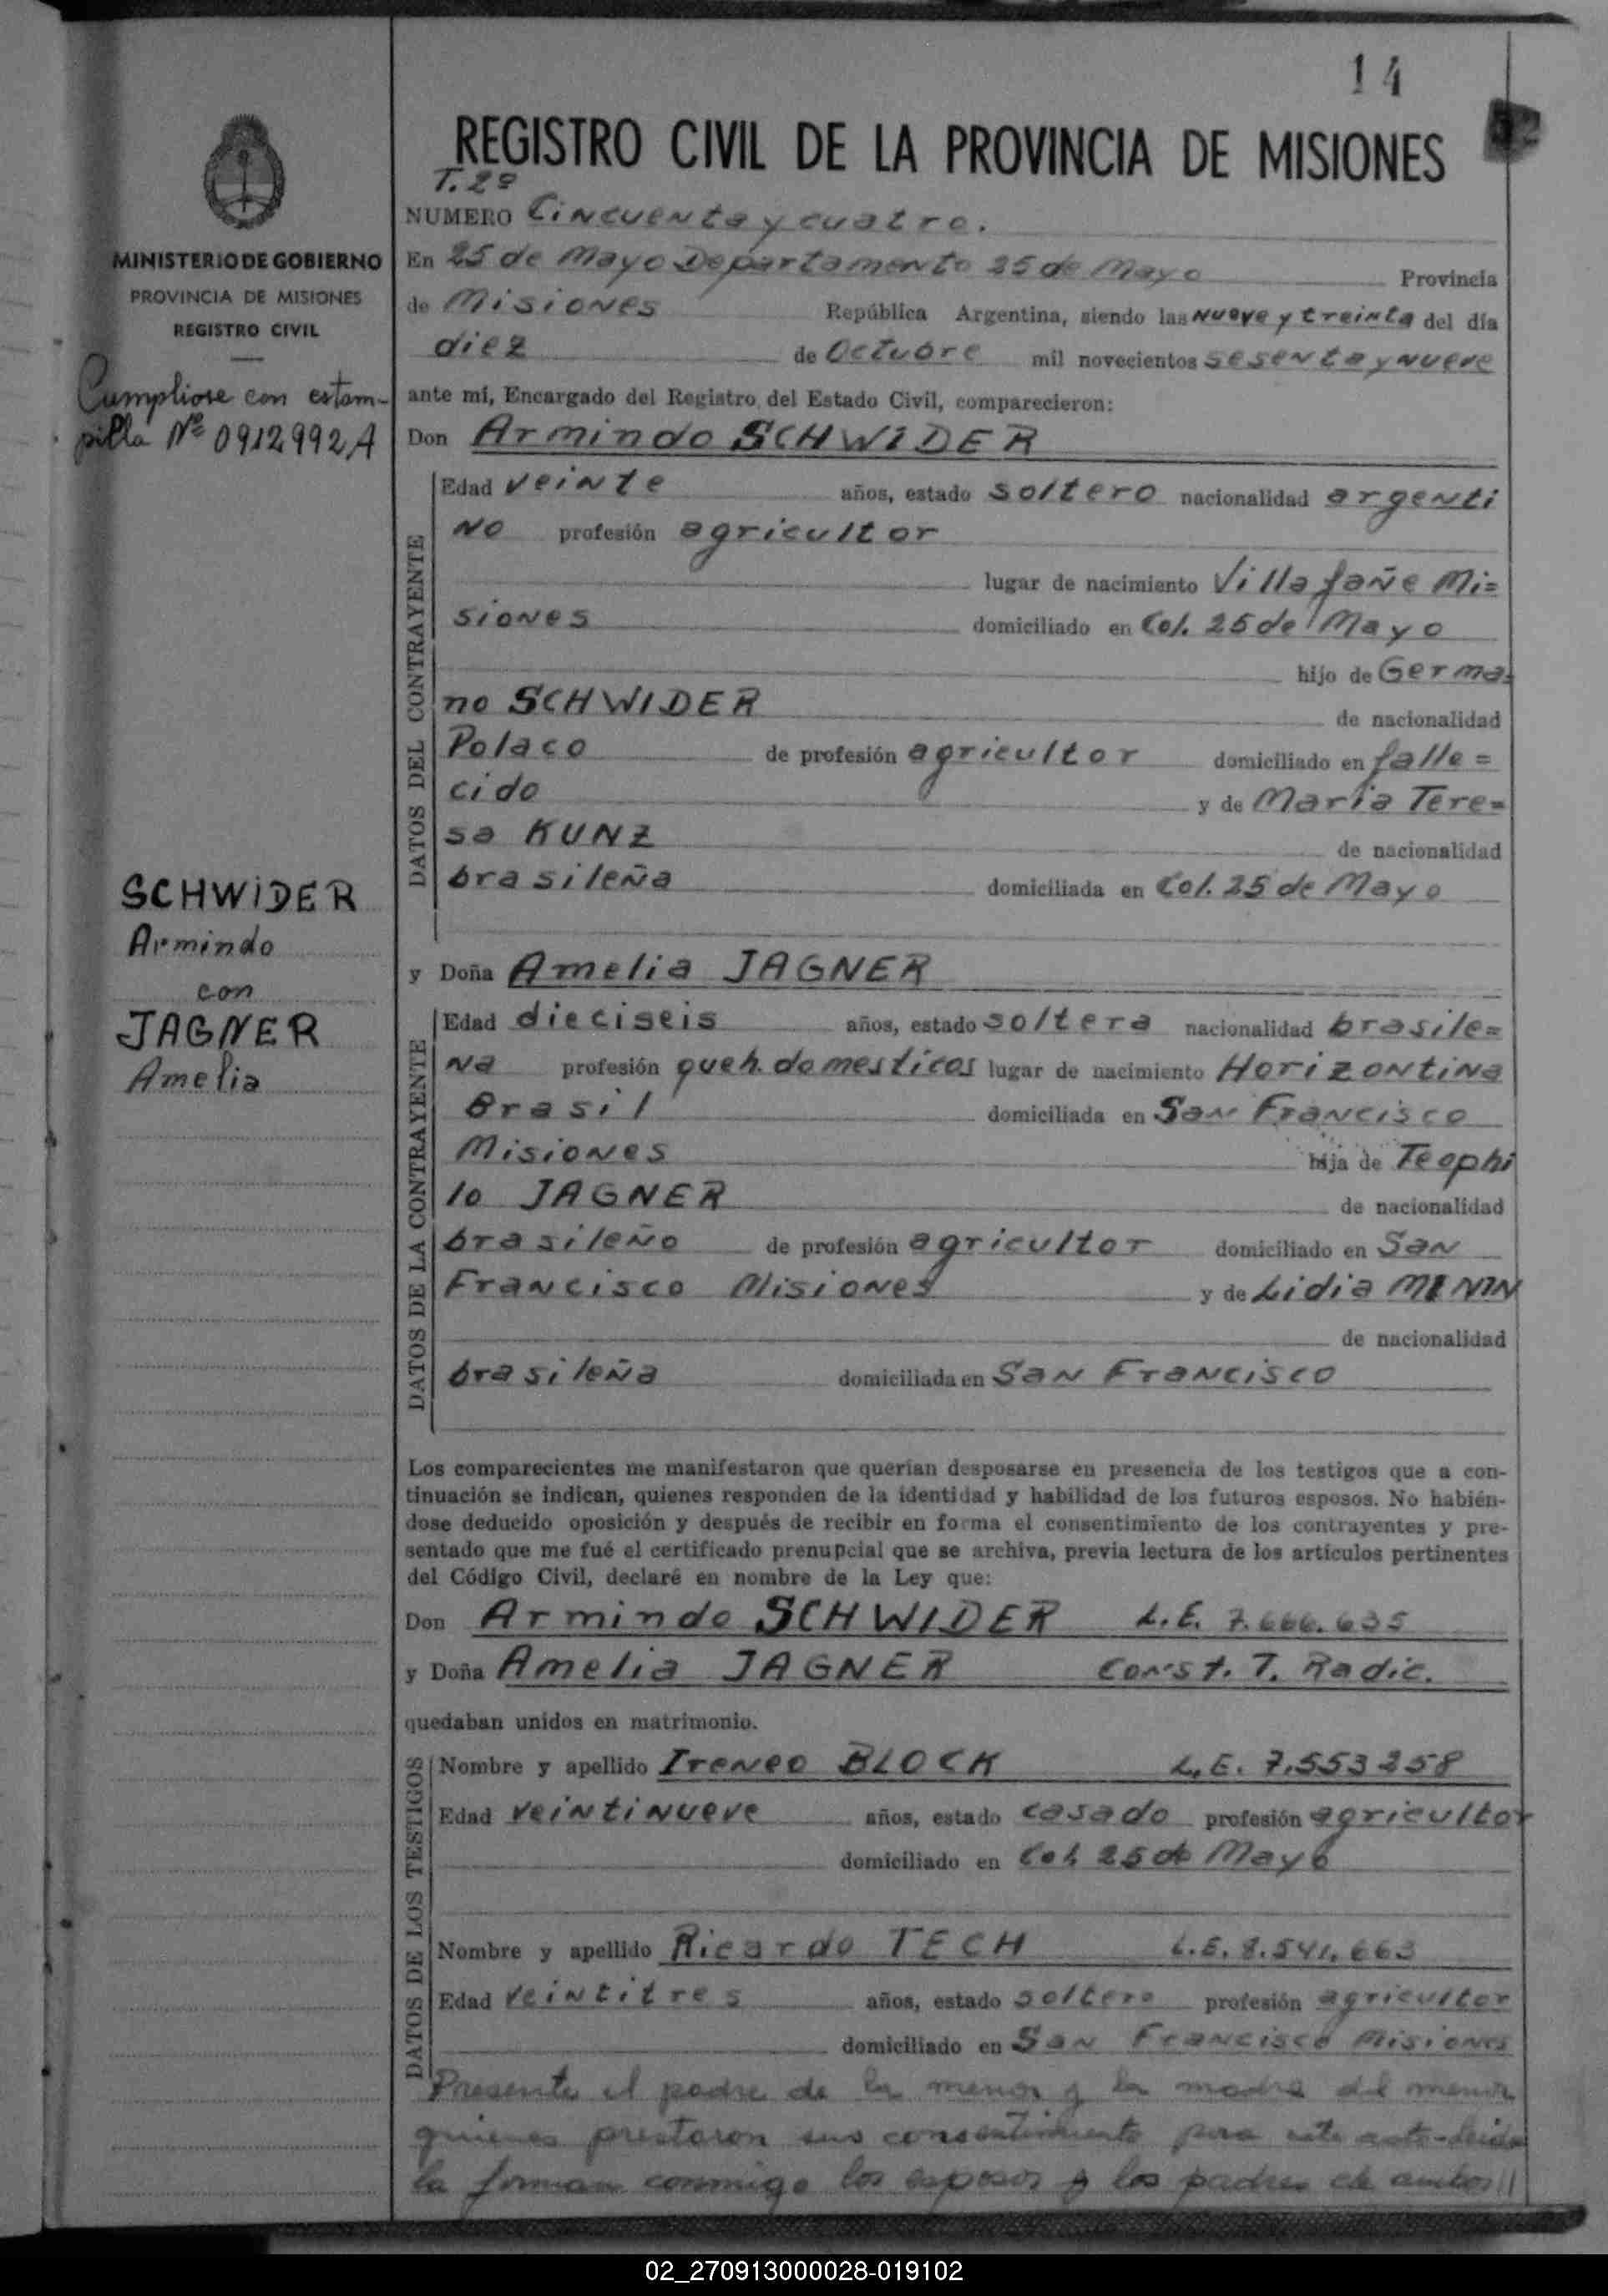 14
REGISTRO CIVIL DE LA PROVINCIA DE MISIONES
T. 2º
MINISTERIO DE GOBIERNO
PROVINCIA DE MISIONES
REGISTRO CIVIL
Cumpliose con estam-
pilla Nº 0912992A
SCHWIDER
Armindo
con
JAGNER
Amelia
NUMERO Cincuenta y cuatro.
En 25 de Mayo Departamento 25 de Mayo Provincia
de Misiones República Argentina, siendo las nueve y treinta del día
diez de Octubre mil novecientos sesenta y nueve
ante mí, Encargado del Registro del Estado Civil, comparecieron:
Don Armindo SCHWIDER
DATOS DEL CONTRAYENTE
Edad veinte años, estado soltero nacionalidad argenti
no profesión agricultor
lugar de nacimiento Villafañe Mi=
siones domiciliado en Col. 25 de Mayo
hijo de Germa=
no SCHWIDER de nacionalidad
Polaco de profesión agricultor domiciliado en falle=
cido y de Maria Tere=
sa KUNZ de nacionalidad
brasileña domiciliada en Col. 25 de Mayo
y Doña Amelia JAGNER
DATOS DE LA CONTRAYENTE
Edad dieciseis años, estado soltera nacionalidad brasile=
na profesión queh. domesticos lugar de nacimiento Horizontina
Brasil domiciliada en San Francisco
Misiones hija de Teophi
lo JAGNER de nacionalidad
brasileño de profesión agricultor domiciliado en San
Francisco Misiones y de Lidia
de nacionalidad
brasileña domiciliada en San Francisco
Los comparecientes me manifestaron que querían desposarse en presencia de los testigos que a con-
tinuación se indican, quienes responden de la identidad y habilidad de los futuros esposos. No habién-
dose deducido oposición y después de recibir en forma el consentimiento de los contrayentes y pre-
sentado que me fué el certificado prenupcial que se archiva, previa lectura de los artículos pertinentes
del Código Civil, declaré en nombre de la Ley que:
Don Armindo SCHWIDER L.E. 7.666.635
y Doña Amelia JAGNER Const. T. Radic.
quedaban unidos en matrimonio.
DATOS DE LOS TESTIGOS
Nombre y apellido Ireneo BLOCK L.E. 7.553258
Edad veintinueve años, estado casado profesión agricultor
domiciliado en Col. 25 de Mayo
Nombre y apellido Ricardo TECH L.E. 8.541.663
Edad veintitres años, estado soltero profesión agricultor
domiciliado en San Francisco Misiones
Presente el padre de la menor y la madre del menor
quienes prestaron sus consentimiento para este acto-leida
la firman conmigo los esposos y los padres de ambos//
02_270913000028-019102